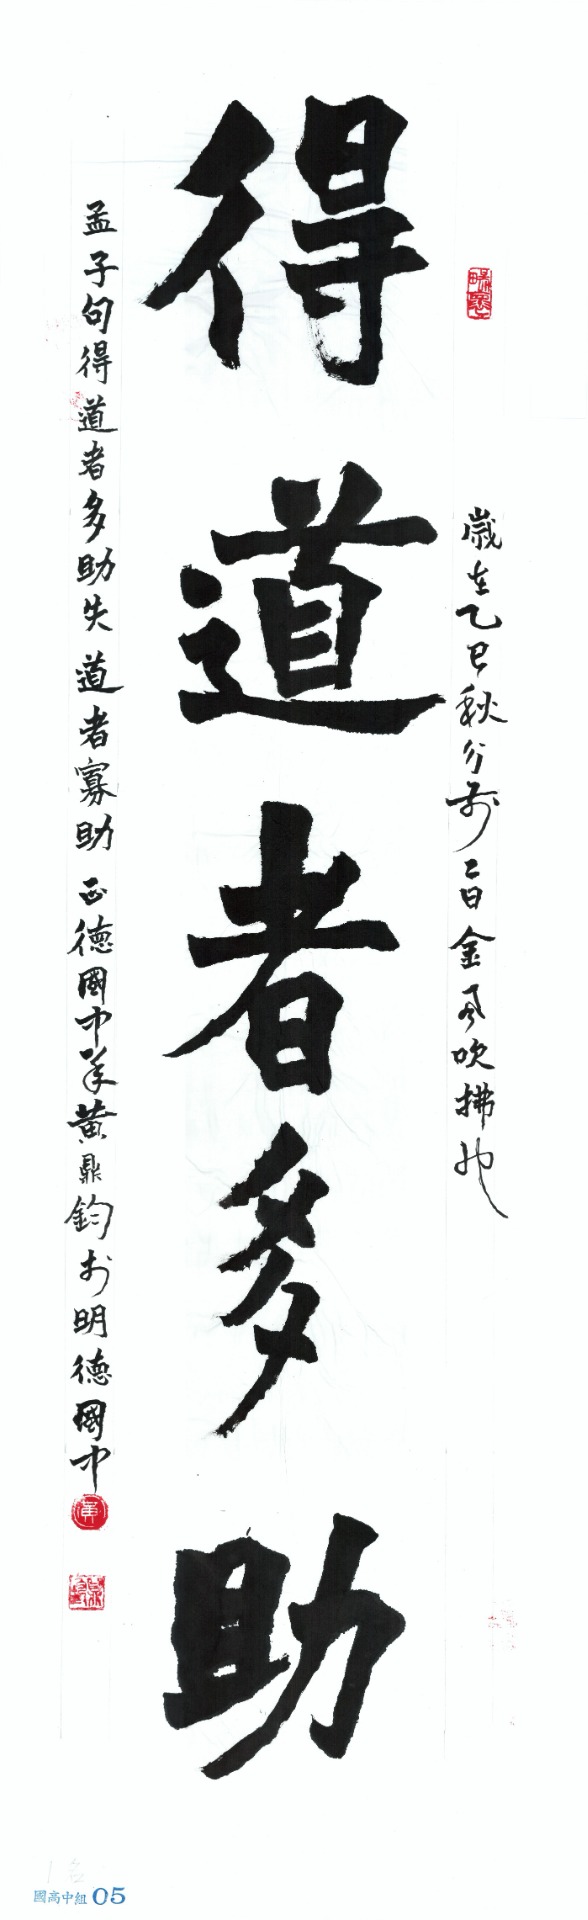 歲在乙巳秋分前二日金風吹拂也
得道者多助
孟子句得道者多助失道者寡助正德國中黃鼎鈞於明德國中
黃
國高中組 05